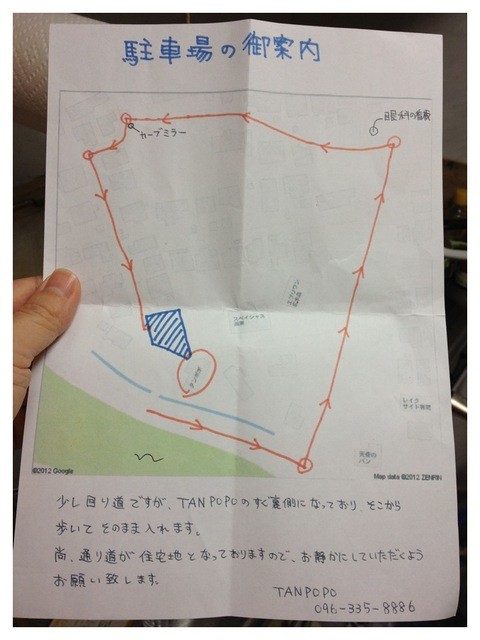 駐車場の御案内
眼科の看板
カーブミラー
タンポポ
レイク
サイド東明
天使の
パン
©2012 Google
Map data ©2012 ZENRIN
少し回り道ですが、TANPOPOのすぐ裏側になっており、そこから
歩いてそのまま入れます。
尚、通り道が住宅地となっておりますので、お静かにしていただくよう
お願い致します。
TANPOPO
096-335-8886